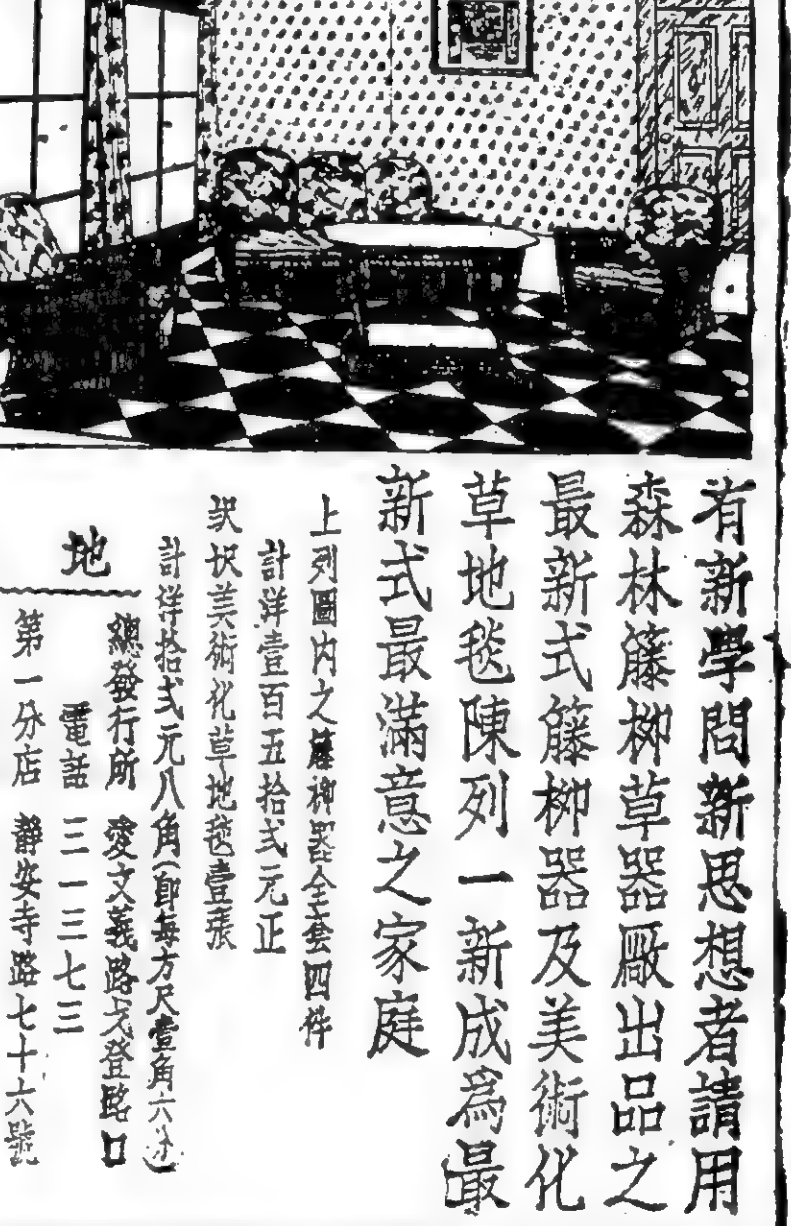 有新學問新思想者請用
森林籐柳草器厰出品之
最新式籐柳器及美術化
草地毯陳列一新成爲最
新式最滿意之家庭
上列圖內之籐柳器全套四件
計洋壹百五拾弍元正
美術化草地毯壹張
計洋拾弍元八角(卽每方尺壹角六分)
地
總發行所 愛文義路戈登路口
電話 三一三七三
第一分店 靜安寺路七十六號